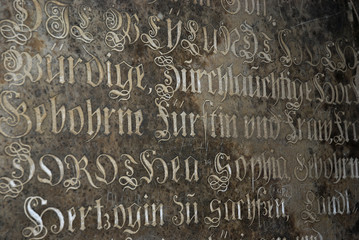 von
DIE WEYLUNDT
Würdige, Durchlauchtige Hoch
Gebohrne Fürstin und Frau, Fr
DOROTHEA Sophia, Gebohrne
Hertzogin zu Sachßen, Landt